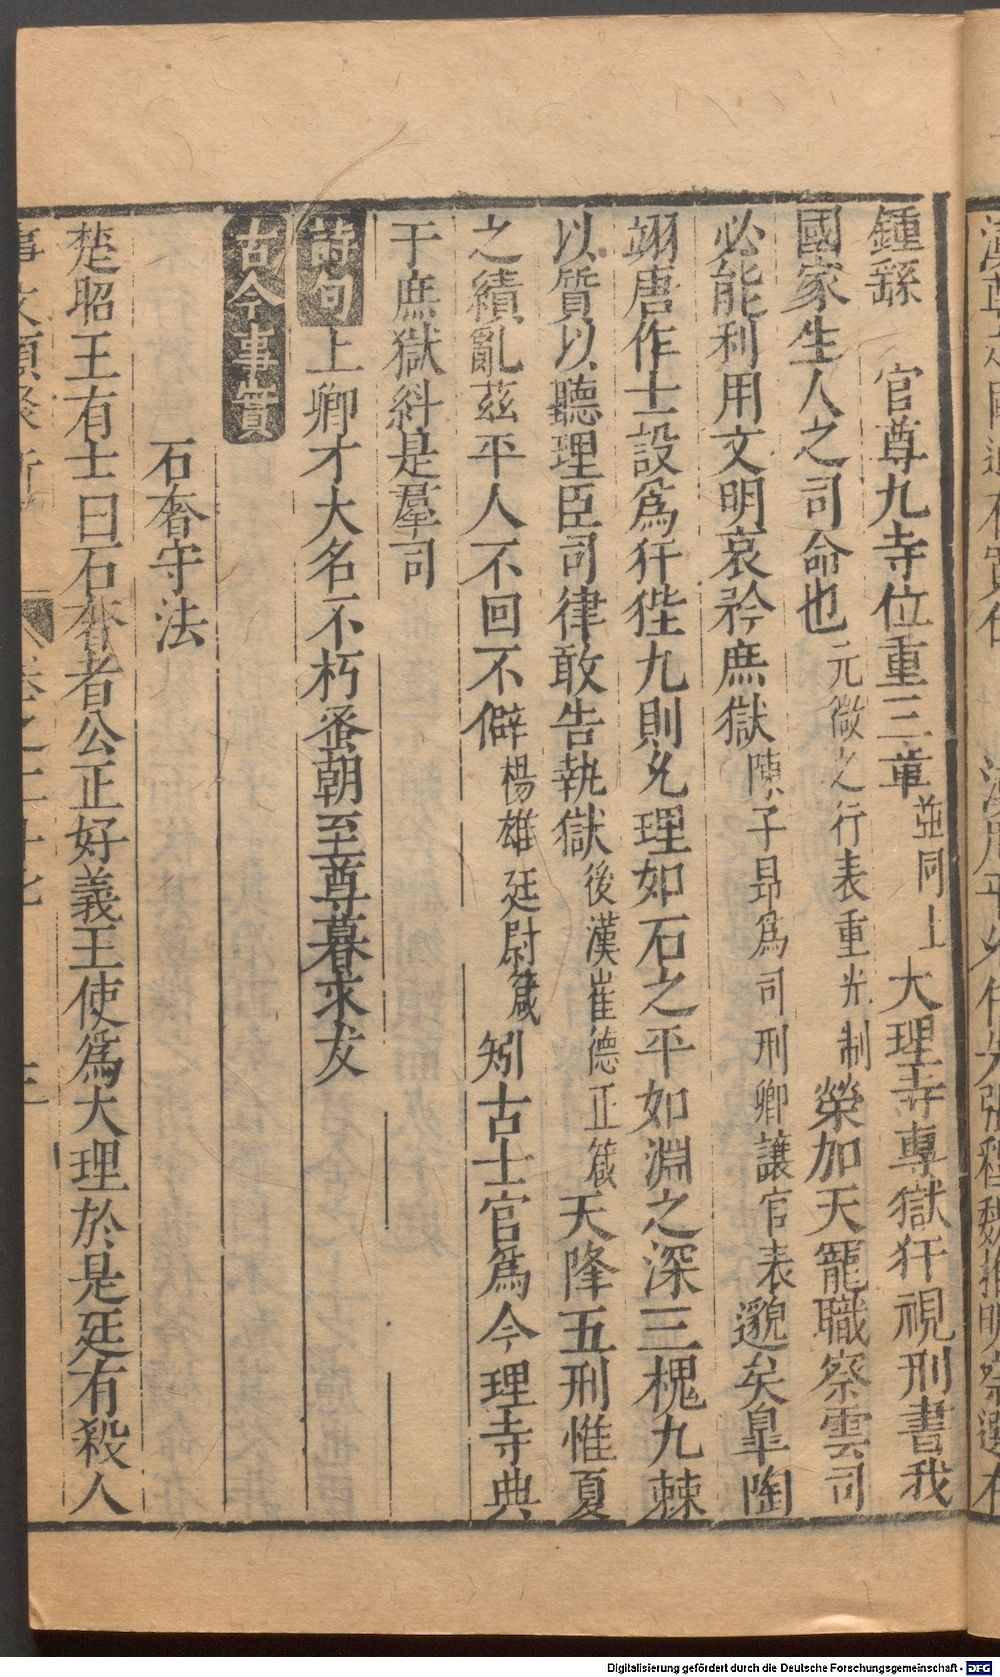 鍾繇　官尊九寺位重三章並同上大理寺專獄犴視刑書我
國家生人之司命也元微之行表重光制榮加天寵職察雲司
必能利用文明哀矜庶獄陳子昻爲司刑卿讓官表邈矣臯陶
翊唐作士設爲犴狴九則允理如石之平如淵之深三槐九棘
以質以聽理臣司律敢告執獄後漢崔德正箴天降五刑惟夏
之績亂茲平人不回不僻楊雄廷尉箴矧古士官爲今理寺典
于庶獄糾是羣司
詩句上卿才大名不朽蚤朝至尊暮求友
古今事實
石奢守法
楚昭王有士曰石奢者公正好義王使爲大理於是廷有殺人
事文類聚新　卷之二十　三
Digitalisierung gefördert durch die Deutsche Forschungsgemeinschaft - DFG